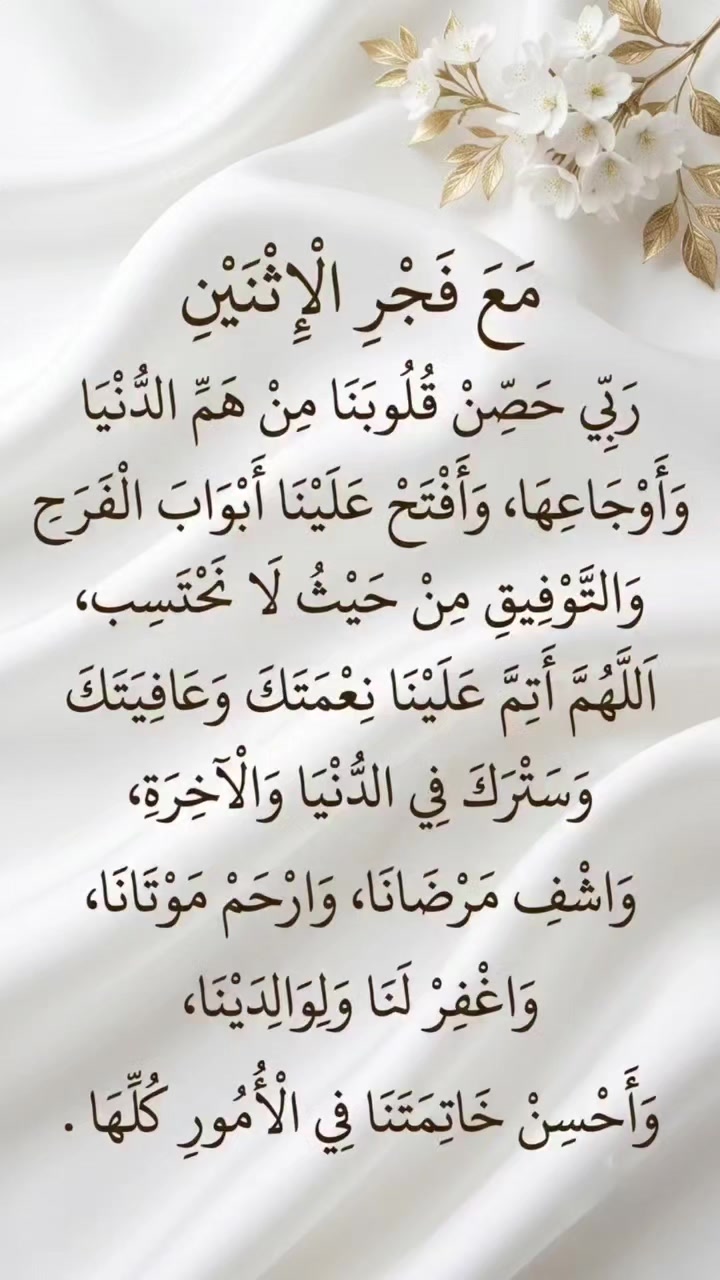 مَعَ فَجْرِ الْإِثْنَيْنِ
رَبِّي حَصِّنْ قُلُوبَنَا مِنْ هَمِّ الدُّنْيَا
وَأَوْجَاعِهَا، وَأَفْتَحْ عَلَيْنَا أَبْوَابَ الْفَرَحِ
وَالتَّوْفِيقِ مِنْ حَيْثُ لَا نَحْتَسِب،
اَللَّهُمَّ أَتِمَّ عَلَيْنَا نِعْمَتَكَ وَعَافِيَتَكَ
وَسَتْرَكَ فِي الدُّنْيَا وَالْآخِرَةِ،
وَاشْفِ مَرْضَانَا، وَارْحَمْ مَوْتَانَا،
وَاغْفِرْ لَنَا وَلِوَالِدَيْنَا،
وَأَحْسِنْ خَاتِمَتَنَا فِي الْأُمُورِ كُلِّهَا .